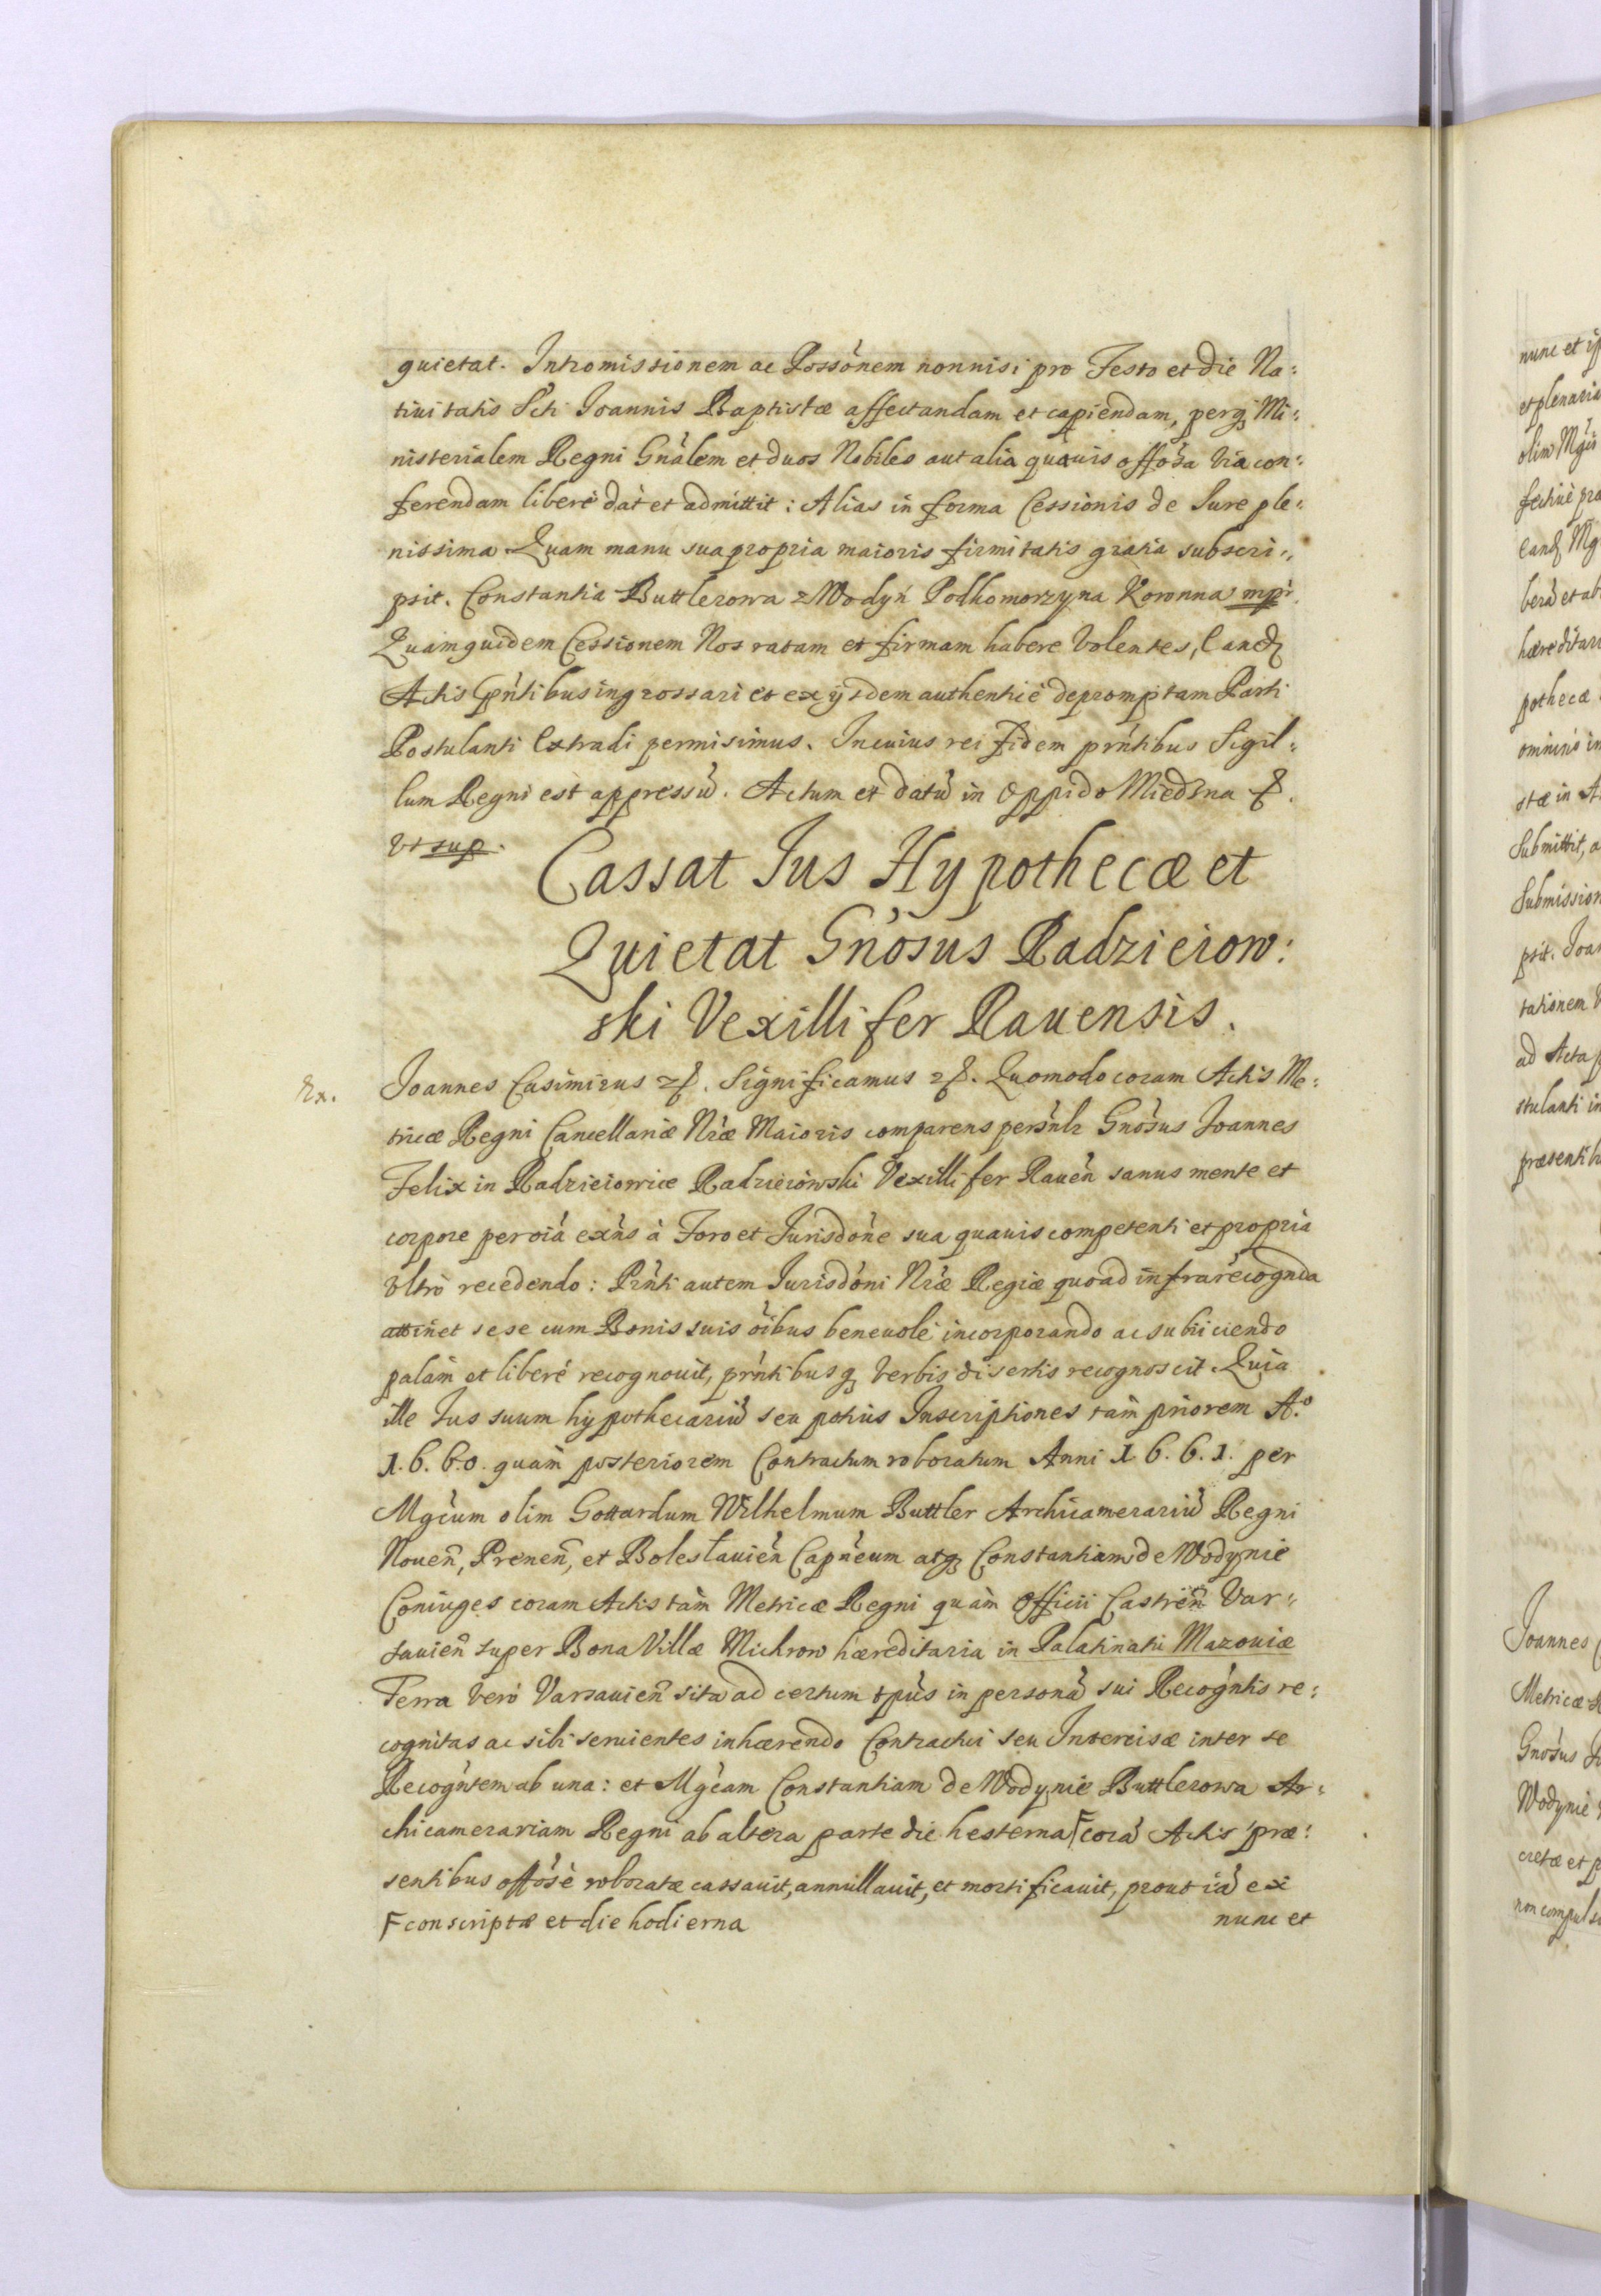 quietat. Intromissionem ac Possõnem nonnisi pro Festo et die Na:
tiuitatis Scti Joannis Baptistæ affectandam et capiendam, perq Mi:
nisterialem Regni Gnãlem et duos Nobiles aut alia quauis offõsa via con:
ferendam liberè dat et admittit: Alias in forma Cessionis de Iure ple:
nissima Quam manu sua propria maioris firmitatis gratia subscri:
psit. Constantia Buttlerowa z Wodyń Podkomorzyna Koronna mpr.
Quamquidem Cessionem Nos ratam et firmam habere volentes, Eandq
Actis pñtibus ingrossari et ex ijsdem authenticè depromptam Parti
Postulanti Extradi permisimus. In cuius rei fidem prñtibus Sigil:
lum Regni est appressũ. Actum et datũ in Oppido Miedzna &.
vt sup.
Cassat Jus Hypothecæ et
Quietat Gnõsus Radzieiow:
ski Vexillifer Rauensis.
Rx. Joannes Casimirus &. Significamus &. Quomodo coram Actis Me:
tricæ Regni Cancellariæ Nræ Maioris comparens persñlr Gnõsus Joannes
Felix in Radzieiowice Radzieiowski Vexillifer Raueñ sanus mente et
corpore per oiã exñs à Foro et Jurisdõne sua quauis competenti et propria
vltrò recedendo: Prñti autem Jurisdõni Nræ Regiæ quoad infra recognda
attinet sese cum Bonis suis oĩbus beneuolè incorporando ac subiiciendo
palàm et liberè recognouit, prñtibusq verbis disertis recognoscit. Quia
ille Jus suum hypothecariũ seu potiùs Inscriptiones tàm priorem A.º
1.6.6.0. quàm posteriorem Contractum roboratum Anni 1 6. 6. 1. per
Mgcum olim Gottardum Wilhelmum Buttler Archicamerariũ Regni
Noueñ, Preneñ, et Bolesłauieñ Capñeum atq Constantiam de Wodynie
Coniuges coram Actis tàm Metricæ Regni quàm Officii Castreñ Var:
sauieñ super Bona Villæ Michrow hæreditaria in Palatinatu Mazouiæ
Terra verò Varsauieñ sita ad certum opus in personã sui Recogñtis re:
cognitas ac sibi seruientes inhærendo Contractui seu Intercisæ inter se
Recogñtem ab una: et Mgcam Constantiam de Wodynie Buttlerowa Ar:
chicamerariam Regni ab altera parte die hesterna F corã Actis præ:
sentibus offõsè roboratæ cassauit, annullauit, et mortificauit, prout iã ex
F conscriptæ et die hodierna
nunc et
nunc et
et plenaria
olim Mgci
hæreditari
pothecæ
stæ in A
Submittit, a
Submission
psit. Joa
tationem
ad Acta
stulanti in
præsentib
Joannes
Metricæ
Gnõsus
Wodynie
cretæ et p
non compuls